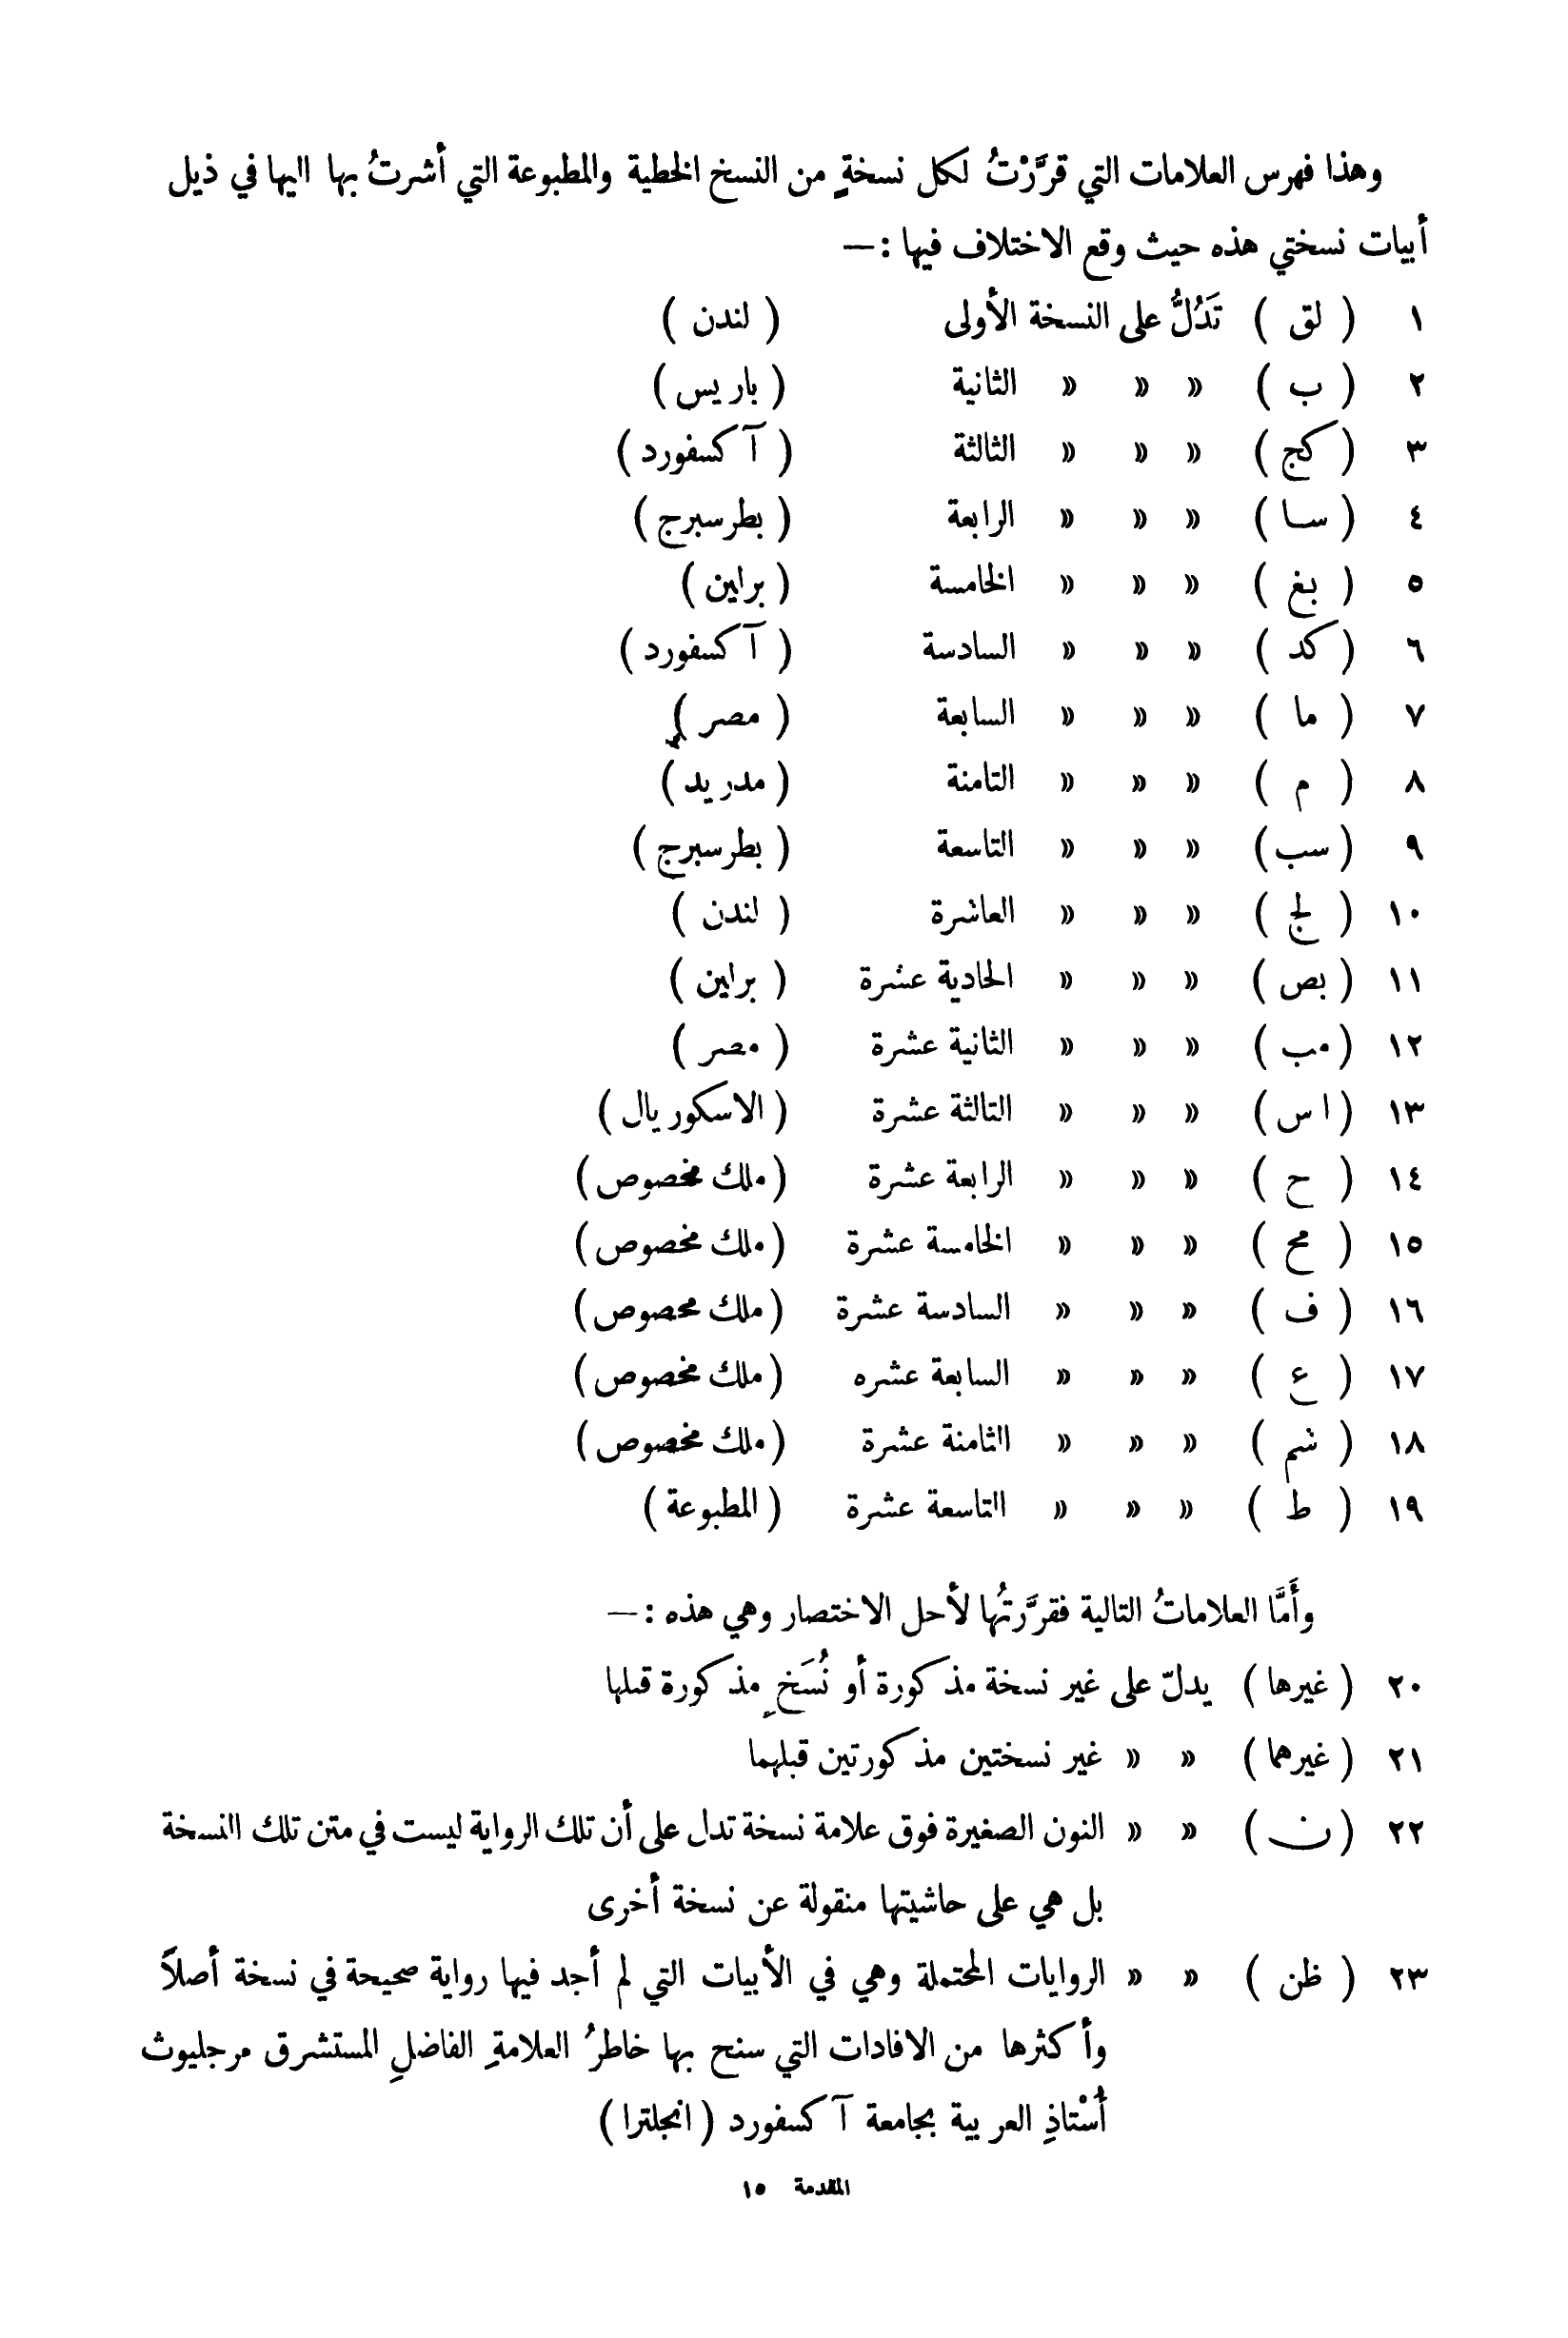 وهذا فهرس العلامات التي قرَّرْتُ لكل نسخةٍ من النسخ الخطية والمطبوعة التي أشرتُ بها اليها في ذيل
أبيات نسختي هذه حيث وقع الاختلاف فيها :—
١ ( لق ) تَدُلُّ على النسخة الأولى ( لندن )
٢ ( ب ) » » » الثانية ( باريس )
٣ ( كج ) » » » الثالثة ( آكسفورد )
٤ ( سا ) » » » الرابعة ( بطرسبرج )
٥ ( بغ ) » » » الخامسة ( برلين )
٦ ( كد ) » » » السادسة ( آكسفورد )
٧ ( ما ) » » » السابعة ( مصر )
٨ ( م ) » » » الثامنة ( مدريد )
٩ ( سب ) » » » التاسعة ( بطرسبرج )
١٠ ( لج ) » » » العاشرة ( لندن )
١١ ( بص ) » » » الحادية عشرة ( برلين )
١٢ ( مب ) » » » الثانية عشرة ( مصر )
١٣ ( اس ) » » » الثالثة عشرة ( الاسكوريال )
١٤ ( ح ) » » » الرابعة عشرة ( ملك مخصوص )
١٥ ( مح ) » » » الخامسة عشرة ( ملك مخصوص )
١٦ ( ف ) » » » السادسة عشرة ( ملك مخصوص )
١٧ ( ع ) » » » السابعة عشره ( ملك مخصوص )
١٨ ( شم ) » » » الثامنة عشرة ( ملك مخصوص )
١٩ ( ط ) » » » التاسعة عشرة ( المطبوعة )
وأَمَّا العلاماتُ التالية فقرَّرتُها لأحل الاختصار وهي هذه :—
٢٠ ( غيرها ) يدلّ على غير نسخة مذكورة أو نُسَخٍ مذكورة قبلها
٢١ ( غيرهما ) » » غير نسختين مذكورتين قبلهما
٢٢ ( ن ) » » النون الصغيرة فوق علامة نسخة تدل على أن تلك الرواية ليست في متن تلك النسخة
بل هي على حاشيتها منقولة عن نسخة أخرى
٢٣ ( ظن ) » » الروايات المحتملة وهي في الأبيات التي لم أجد فيها رواية صحيحة في نسخة أصلاً
وأكثرها من الافادات التي سنح بها خاطرُ العلامةِ الفاضلِ المستشرق مرجليوث
أُسْتاذِ العربية بجامعة آكسفورد ( انجلترا )
المقدمة ١٥